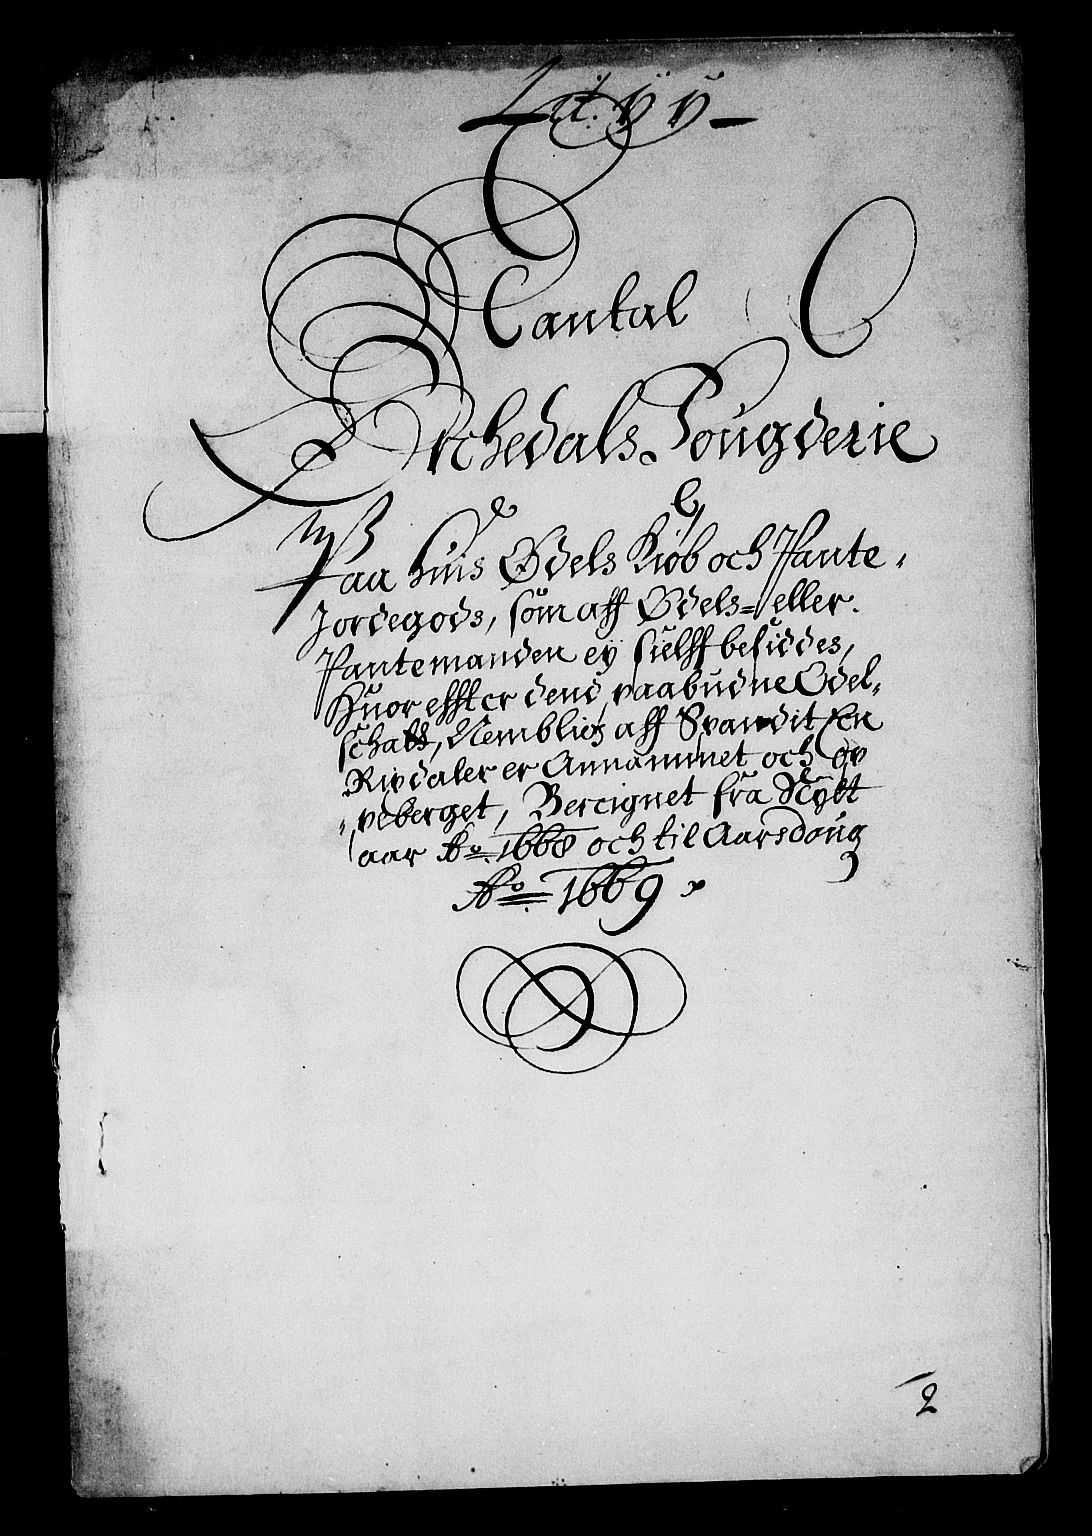 Lit. ÿÿ
Mantal
Orchedals Fougderie
Paa huis Odels Kiøb och Pante-
Jordegods, som aff Odels= eller
Pantemanden eÿ sielff besiddes,
Huor effter dend paabudne Odel-
schatt, Nemblig aff Spandit En
Rixdaler er Annammet och op
peberget, Bereignet fra Nytt
aar Ao. 1668 och til Aarsdoug
Ao. 1669
2